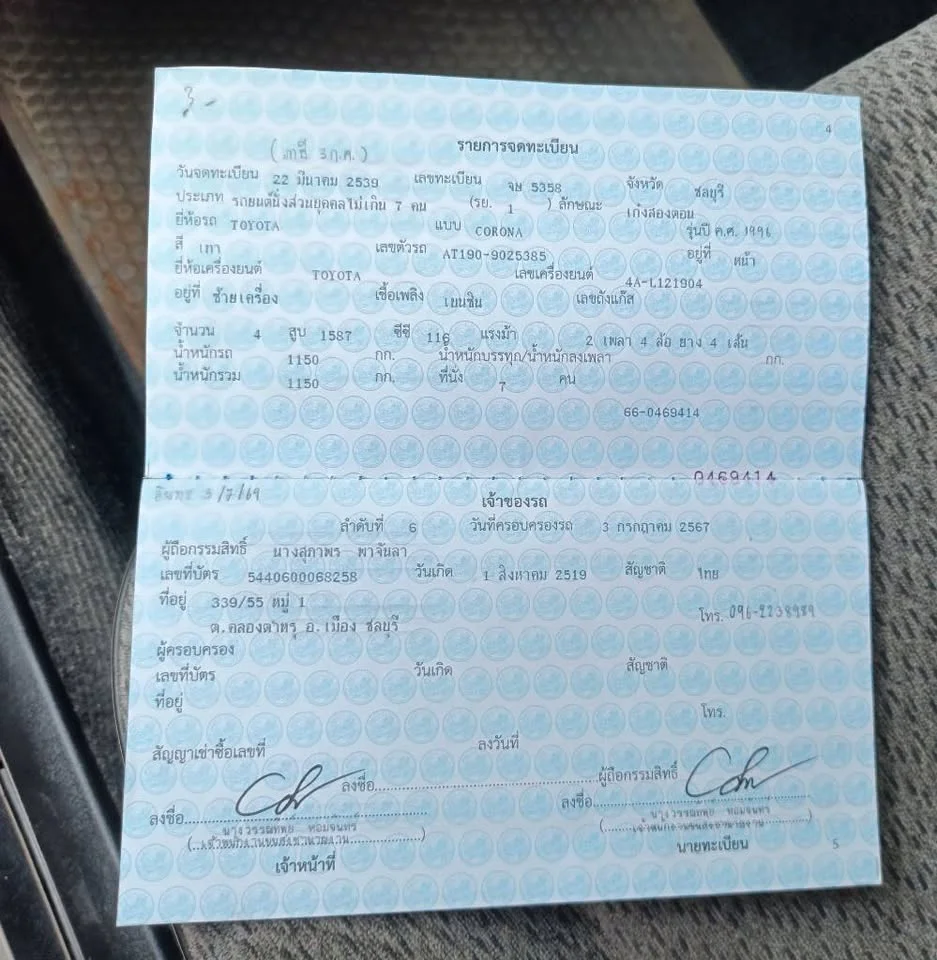 3 -
4
(ภาษี 3 ก.ค.) รายการจดทะเบียน
วันจดทะเบียน 22 มีนาคม 2539 เลขทะเบียน จษ 5358 จังหวัด ชลบุรี
ประเภท รถยนต์นั่งส่วนบุคคลไม่เกิน 7 คน (รย. 1 ) ลักษณะ เก๋งสองตอน
ยี่ห้อรถ TOYOTA แบบ CORONA รุ่นปี ค.ศ. 1996
สี เทา เลขตัวรถ AT190-9025385 อยู่ที่ หน้า
ยี่ห้อเครื่องยนต์ TOYOTA เลขเครื่องยนต์ 4A-L121904
อยู่ที่ ซ้ายเครื่อง เชื้อเพลิง เบนซิน เลขถังแก๊ส
จำนวน 4 สูบ 1587 ซีซี 116 แรงม้า 2 เพลา 4 ล้อ ยาง 4 เส้น
น้ำหนักรถ 1150 กก. น้ำหนักบรรทุก/น้ำหนักลงเพลา กก.
น้ำหนักรวม 1150 กก. ที่นั่ง 7 คน
66-0469414
0469414
3/7/69 เจ้าของรถ
ลำดับที่ 6 วันที่ครอบครองรถ 3 กรกฎาคม 2567
ผู้ถือกรรมสิทธิ์ นางสุภาพร พาจันลา
เลขที่บัตร 5440600068258 วันเกิด 1 สิงหาคม 2519 สัญชาติ ไทย
ที่อยู่ 339/55 หมู่ 1
ต.คลองตำหรุ อ.เมือง ชลบุรี โทร. 096-2238989
ผู้ครอบครอง
เลขที่บัตร วันเกิด สัญชาติ
ที่อยู่
โทร.
สัญญาเช่าซื้อเลขที่ ลงวันที่
ลงชื่อ ผู้ถือกรรมสิทธิ์
ลงชื่อ ลงชื่อ
นางวรรณทิพย์ หอมจันทร์ นางวรรณทิพย์ หอมจันทร์
เจ้าหน้าที่ นายทะเบียน 5